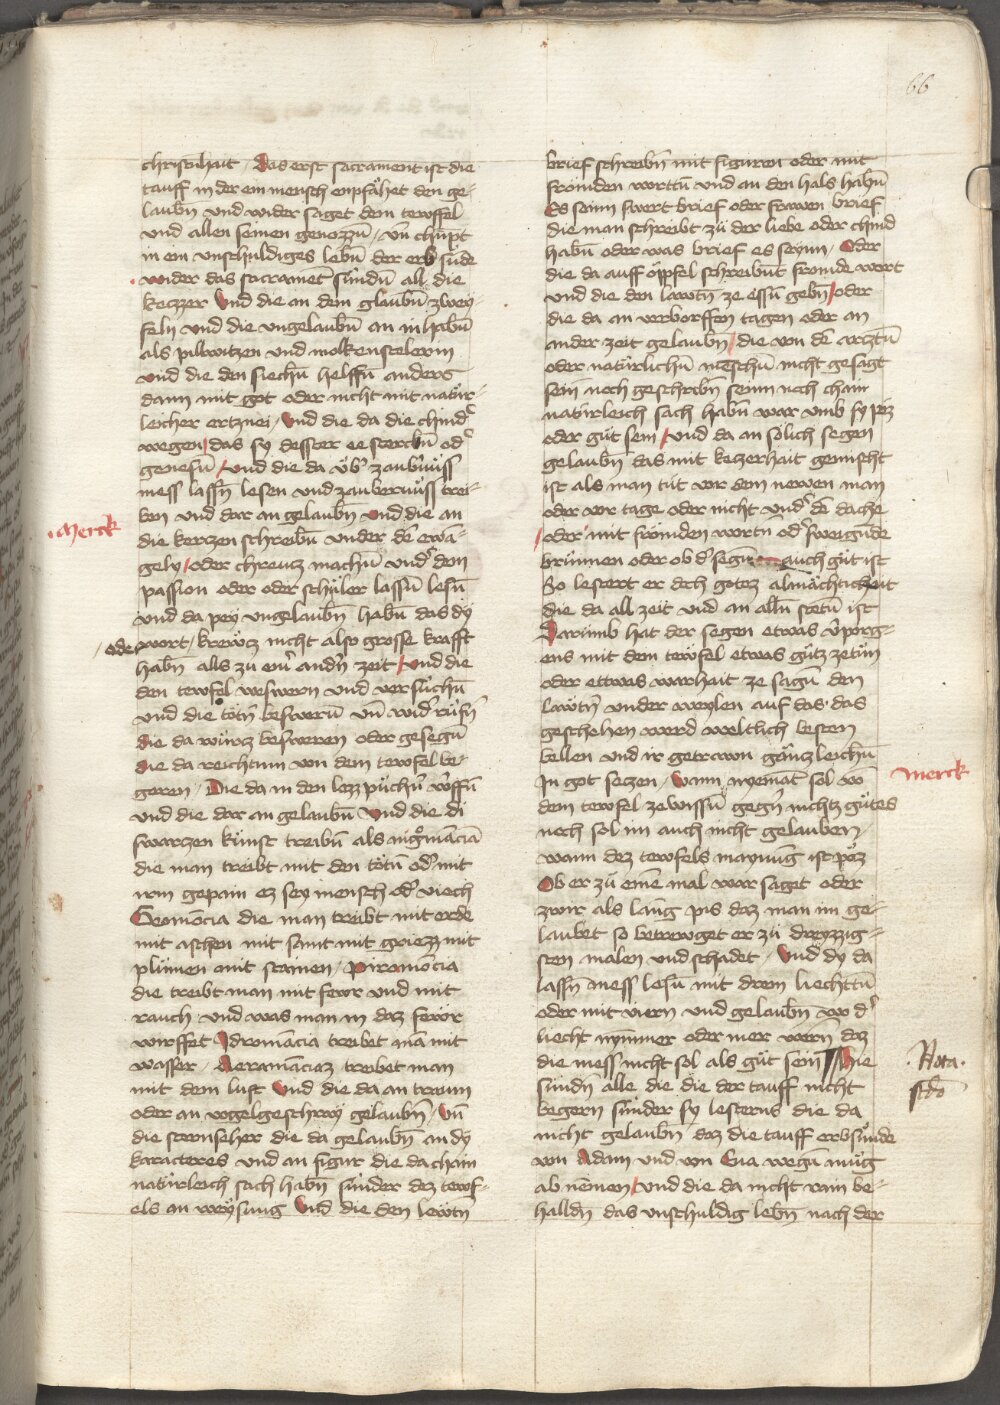 66
christ̄hait / Das erst sacrament ist die
tauff in der ein mensch enpfähet den ge-
laubn̄ vnd wider saget dem tewffel
vnd allen seinen genozzn̄ / vn̄ chūpt
in ein vnschuldiges lebn̄ der erb sūde
wider das sacramēt sündn̄ all die
keczzer Vnd die an dem glaubn̄ zwey-
feln vnd die vngelaubn̄ an in habn̄
als pilwitzen vnd molkenstelerin
vnd die den siechn̄ helffn̄ anders
dann mit got oder nicht mit natür-
leicher ertznei / Vnd die da die chind͛
wegen / das sy dester ee sterbn̄ od͛
genesn̄ / Vnd die da vb͛ zaub͛nüss
mess lassn̄ lesen vnd zaubernüss trei-
ben vnd dar an gelaubn̄ Vnd die an
Merck
die kerczen schreibn̄ vnder dē ewā-
gely / oder chreucz machn̄ vnd͛ den
passion oder oder schüler lassn̄ lesn̄
vnd da pey vngelaubn̄ habn̄ das dy
/ oder wort / krewcz nicht also grosse krafft
habn̄ alls zu ein͛ and͛n zeit / Vnd die
den tewfel weswern vnd versüchn̄
vnd die tötn̄ beswern̄ vn̄ wid͛ rüfn̄
die da würcz besweren oder gesegn̄
die da reichtum von dem tewfel be-
geren / Die da in den lozz püchn̄ w͛ffn̄
vnd die dar an gelaubn̄ Vnd die di
swarczen künst treibn̄ als nigromācia
die man treibt mit den tötn̄ od͛ mit
irm gepain ez sey mensch od͛ viech
Geomācia die man treibt mit erde
mit aschen mit samt mit griezz mit
plümen mit stainen / piromācia
die treibt man mit fewr vnd mit
rauch vnd was man in daz fewr
wirffet Idromācia treibet mā mit
wasser / Aeramāciaz treibet man
mit dem luft Vnd die da an traum
oder an vogelgeschray gelaubn̄ / Vn̄
die sternseher die da gelaubn̄ an dy
karacteres vnd an figur die da chain
natürleich sach habn̄ sunder dez tewf-
els an weysung Vnd die den lewtn̄
brief schreibn̄ mit figuren oder mit
frömden worttn̄ vnd an den hals habn̄
Es seinn swert brief oder frawen brief
die man schreibt zü der liebe oder chind
habn̄ oder was brief es seynn / Oder
die da auff öpfel schreibnt frömde wort
vnd die den lawtn̄ ze essn̄ gebn̄ / oder
die da an verborffen tagen oder an
ander zeit gelaubn̄ / die von dē arcztn̄
oder natürlichn̄ menschn̄ nicht gesagt
sein noch geschribn̄ seinn noch chain
natürleich sach habn̄ war vmb sy pöz
oder güt sein / Vnd da an sölich segen
gelaubn̄ das mit keczerhait gemischt
ist als man tüt vor dem newen man
oder vor tage oder nicht vnd͛ dē dache
/ oder mit frömden wortn̄ od͛ sweigūde
brünnen oder ob d͛ segn̄ auch güt ist
So lestert er doch gotez almächticheit
die da all zeit vnd an alln̄ stetn̄ ist
Darumb hat der segen etwas v͛porg-
ens mit dem tewfel etwas gütz zetün
oder ettwas warhait ze sagn̄ den
lawtn̄ vnder weylen auf das das
geschehen werd weltlich besten
bellen vnd ir getrawn gänczleichn̄
In got seczen / Wann nyemāt sol vō
Merck
dem tewfel ze wissn̄ geg͛n nichtz gütes
noch sol im auch nicht gelauben
wann dez tewfels maynūg ist pöz
Ob er zü einē mal war saget oder
zwir als lang pis daz man im ge-
laubet so betrewget er zü dreyzzig-
sten malen vnd schadet / Vnd dy da
lassn̄ mess lesn̄ mit drein liechttn̄
oder mit viern vnd gelaubn̄ wo d͛
liecht nymmer oder mer wern̄ daz
die mess nicht sol als güt sein Die
Nota.
sündn̄ alle die die der tauff nicht
begern sünder sy lesterns die da
nicht gelaubn̄ daz die tauff erbsünde
von Adam vnd von Eua wegn̄ mug
ab nemen / Vnd die da nicht rain be-
halldn̄ das vnschuldig lebn̄ nach der